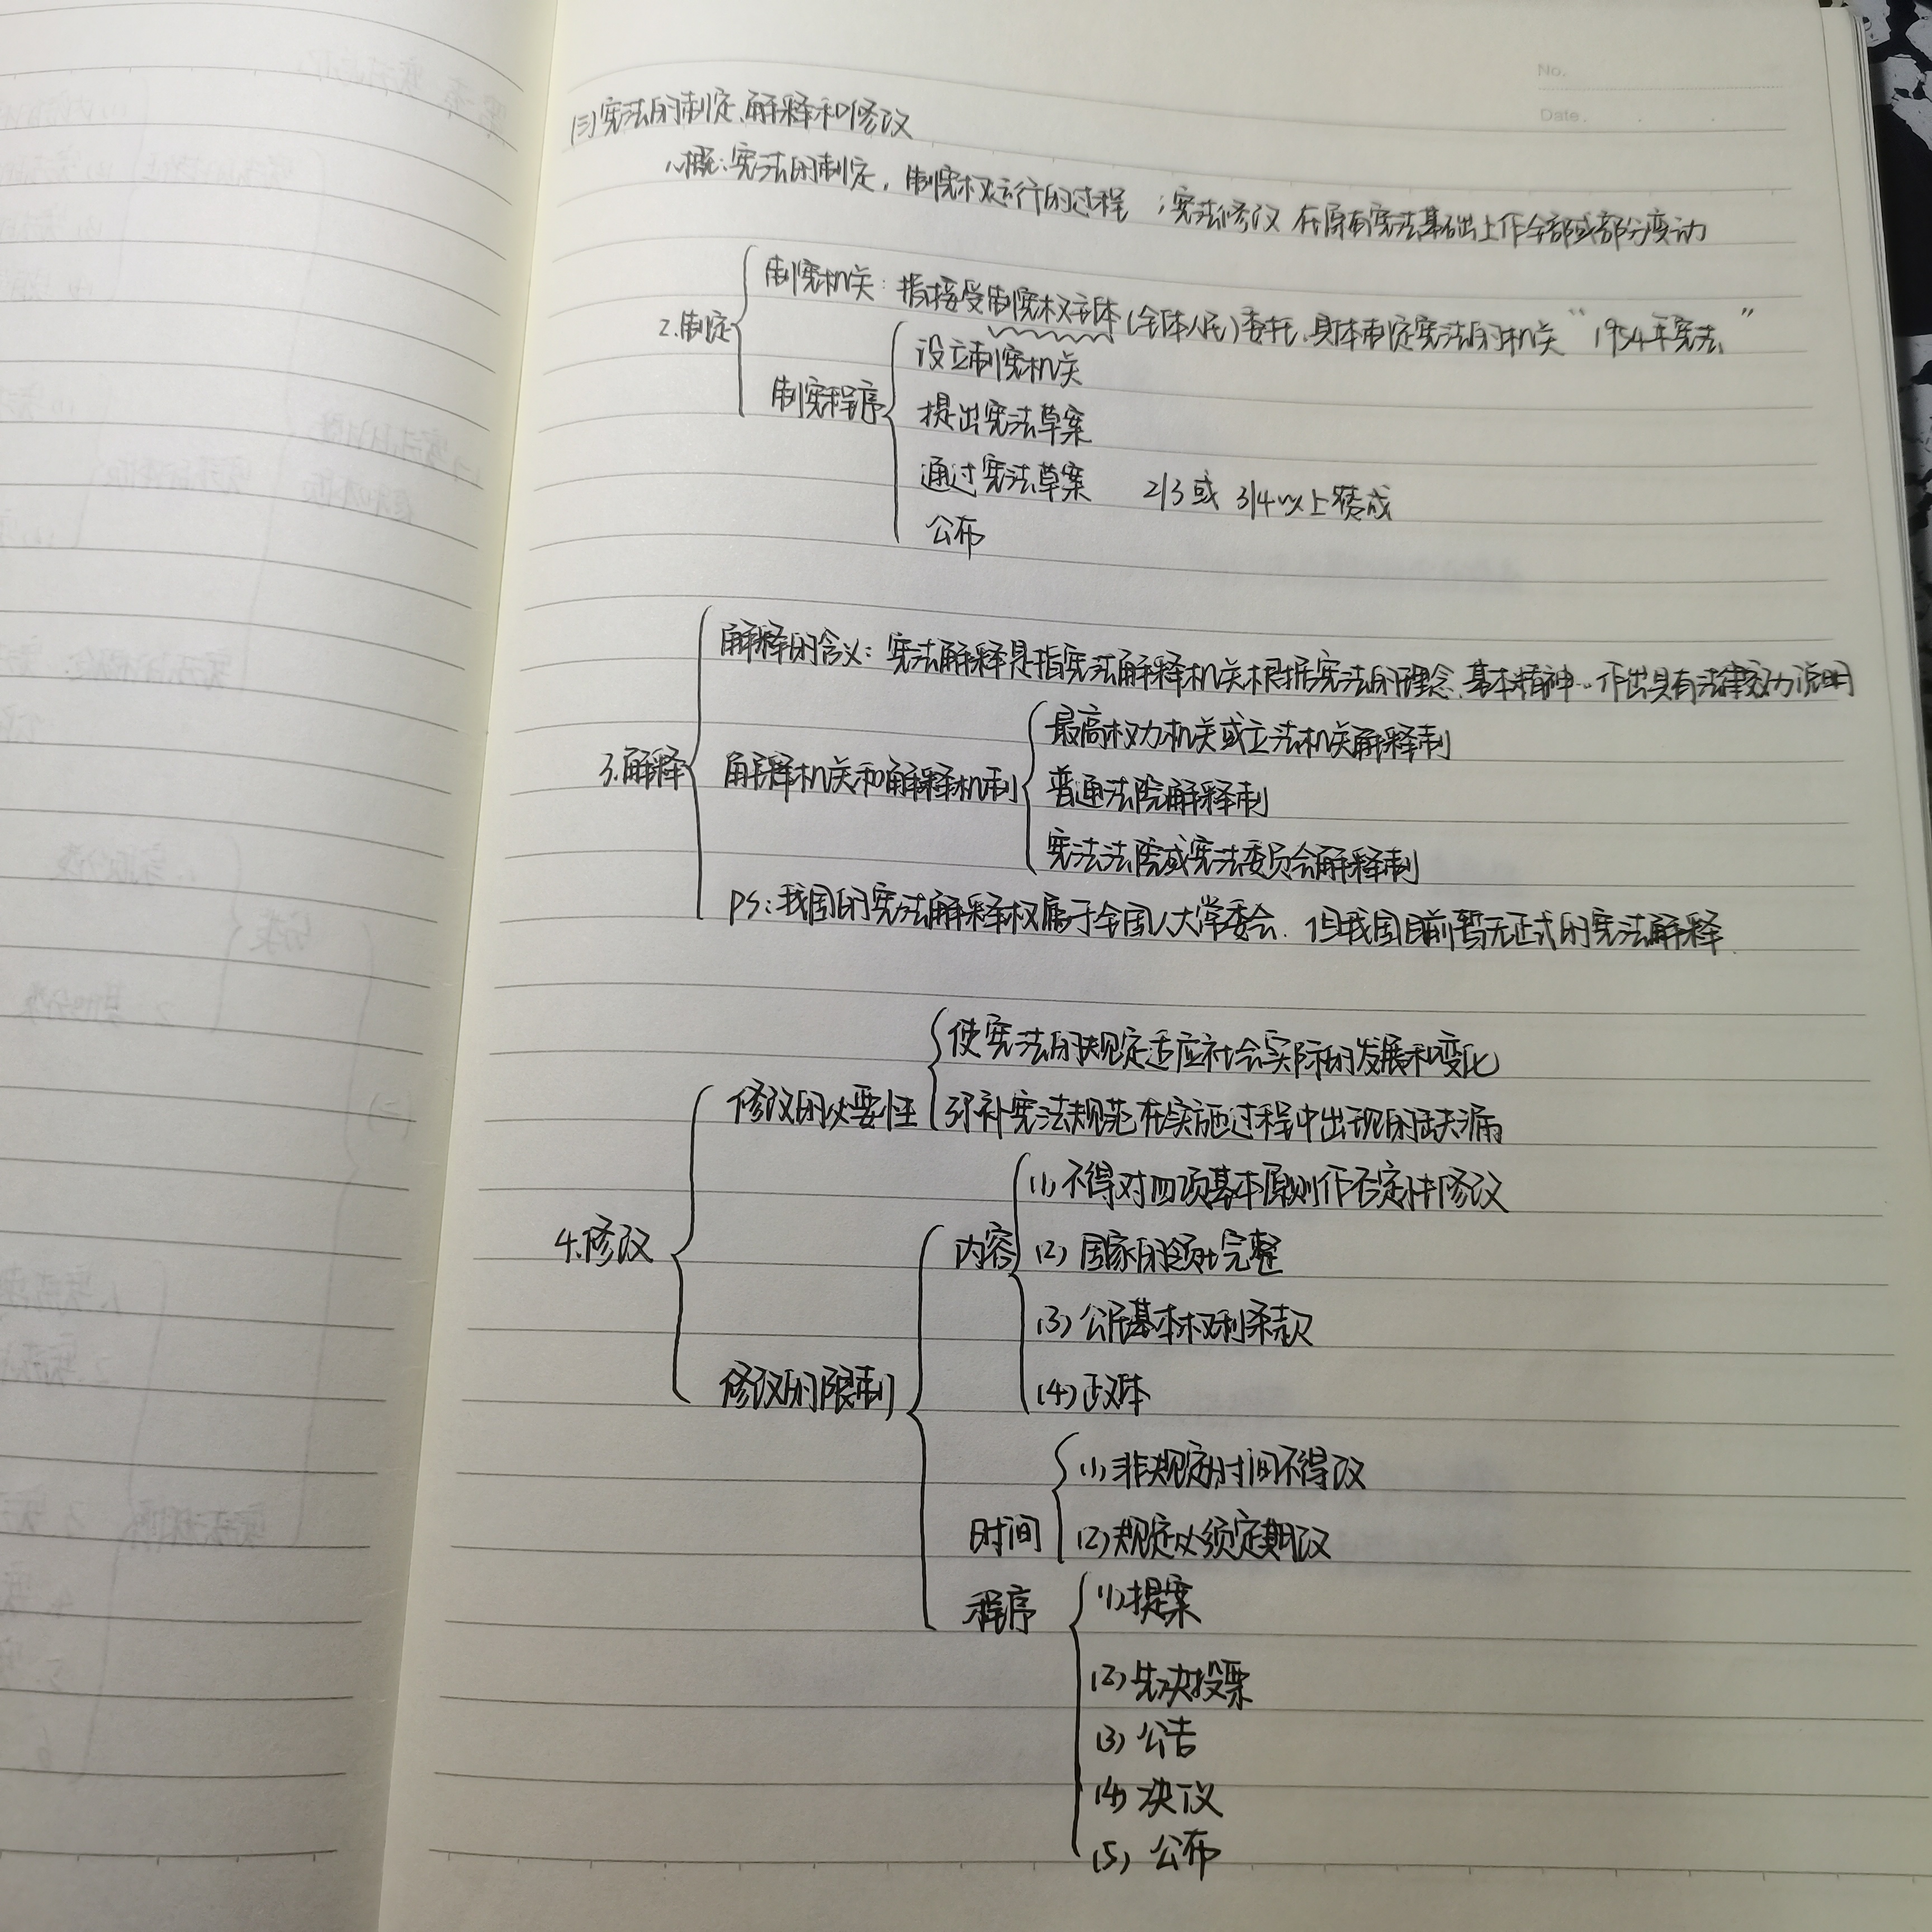 No.
Date.
(三)宪法的制定、解释和修改
1、概:宪法的制定,制宪权运行的过程 ;宪法修改 在原有宪法基础上作全部或部分变动
2.制定
制宪机关:指接受制宪权主体(全体人民)委托、具体制定宪法的机关“1954年宪法”
制宪程序
设立制宪机关
提出宪法草案
通过宪法草案 2/3或 3/4以上赞成
公布
3.解释
解释的含义:宪法解释是指宪法解释机关根据宪法的理念、基本精神…作出具有法律效力说明
解释机关和解释机制
最高权力机关或立法机关解释制
普通法院解释制
宪法法院或宪法委员会解释制
PS:我国的宪法解释权属于全国人大常委会.但我国目前暂无正式的宪法解释.
4.修改
修改的必要性
使宪法的规定适应社会实际的发展和变化
弥补宪法规范在实施过程中出现的缺漏
修改的限制
内容
(1)不得对四项基本原则作否定性修改
(2)国家的领土完整
(3)公民基本权利条款
(4)政体
时间
(1)非规定时间不得改
(2)规定必须定期改
程序
(1)提案
(2)先决投票
(3)公告
(4)决议
(5)公布